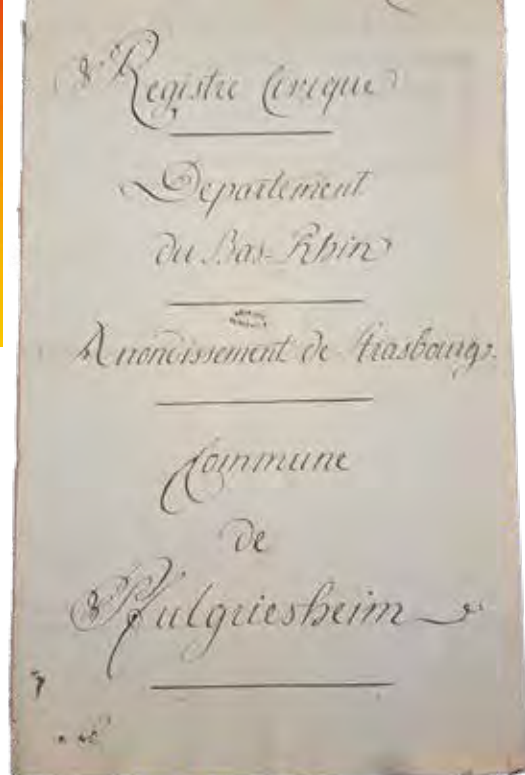 Registre Civique
Departement
du Bas-Rhin
Arrondissement de Strasbourg.
Commune
de
Pfulgriesheim